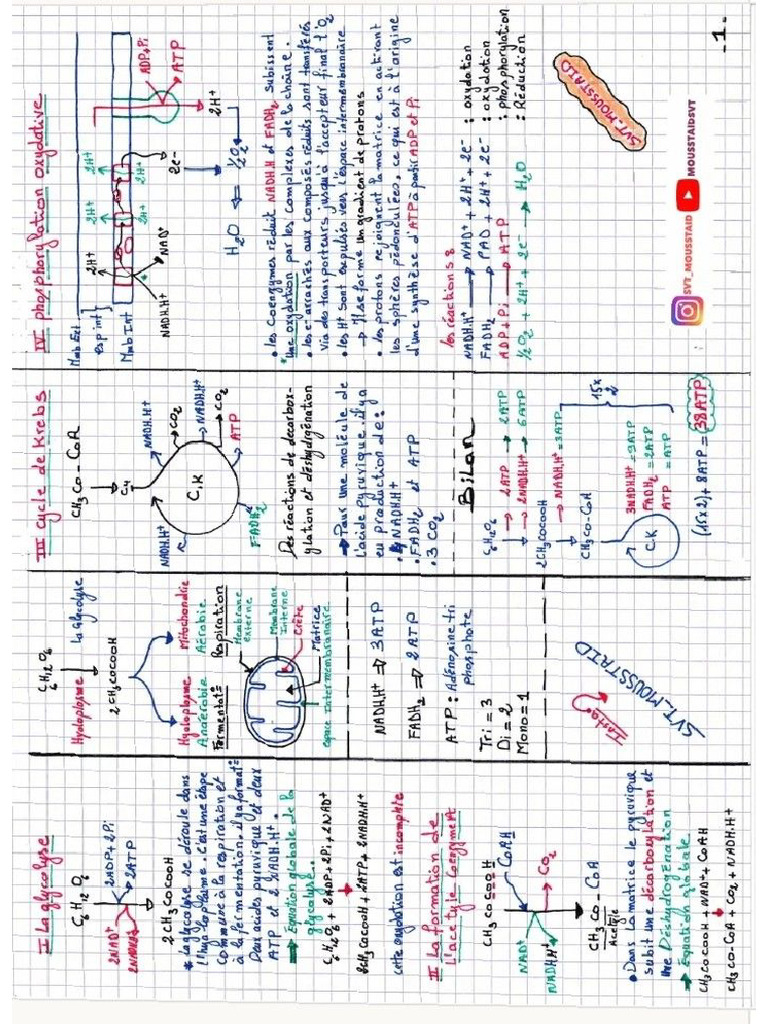 I La glycolyse
C6H12O6
2NAD+
2NADH.H+
2ADP+2Pi
2ATP
2CH3COCOOH
* La glycolyse se déroule dans
l'hyaloplasme. C'est une étape
commune à la respiration et
à la fermentation. il ya format°
Deux acides pyruvique et deux
ATP et 2 NADH.H+.
⇒ Equation globale de la
glycolyse..
C6H12O6 + 2ADP+2Pi+2NAD+
2CH3COCOOH + 2ATP + 2NADH.H+
cette oxydation est incomplète
II La formation de
l'acetyle Coenzyment
CH3COCOOH
CoAH
NAD+
NADH.H+
CO2
CH3-CO-CoA
Acetyle
• Dans la matrice le pyruvique
subit une décarboxylation et
une Déshydrogénation
→ Equation globale
CH3COCOOH + NAD+ + CoAH
CH3CO-CoA + CO2 + NADH.H+
C6H12O6
Hyaloplasme
La Glycolyse
2CH3COCOOH
Hyaloplasme
Anaérobie
Fermentat°
Mitochondrie
Aérobie
Respiration
Membrane
externe
Membrane
Interne
Crête
Matrice
espace Intermembranaire
NADH.H+ ⇒ 3ATP
FADH2 ⇒ 2ATP
ATP : Adénosine tri
Phosphote
Tri = 3
Di = 2
Mono = 1
Insta
SVT_MOUSSTAID
III Cycle de Krebs
CH3CO-CoA
C4
NADH.H+
CO2
NADH.H+
CO2
ATP
C.K
NADH.H+
FADH2
Des réactions de décarbox-
ylation et déshydrogénation
→ Pour une molécule de
l'acide pyruvique. il ya
eu production de:
• 4 NADH.H+
• FADH2 et ATP
• 3 CO2
Bilan
C6H12O6
→ 2ATP → 2ATP
→ 2NADH.H+ → 6ATP
2CH3COCOOH
→ NADH.H+ = 3ATP
CH3-CO-CoA
C.K
3NADH.H+ = 9ATP
FADH2 = 2ATP
ATP = ATP
15x2
(15x2) + 8ATP = 38ATP
IV phosphorylation oxydative
Mmb Ext
esp int
Mmb Int
2H+
2H+
2H+
2H+
2H+
2e-
NADH.H+
NAD+
ADP+Pi
ATP
2H+
H2O ⇐ ½O2
• les Coenzymes réduit NADH.H et FADH2 subissent
une oxydation par les complexes de la chaîne.
• les e- arrachés aux composés réduits sont transférés
via des transporteurs jusqu'à l'accepteur final l'O2
• les H+ sont expulsés vers l'espace intermembranaire
→ Il se forme un gradient de protons
• les protons rejoignent la matrice en activant
les sphères pédonculées, ce qui est à l'origine
d'une synthèse d'ATP à partir ADP et Pi
les réactions :
NADH.H+ → NAD+ + 2H+ + 2e- : oxydation
FADH2 → FAD + 2H+ + 2e- : oxydation
ADP+Pi → ATP : phosphorylation
½O2 + 2H+ + 2e- → H2O : Réduction
SVT_MOUSSTAID
SVT_MOUSSTAID
MOUSSTAIDSVT
-1-